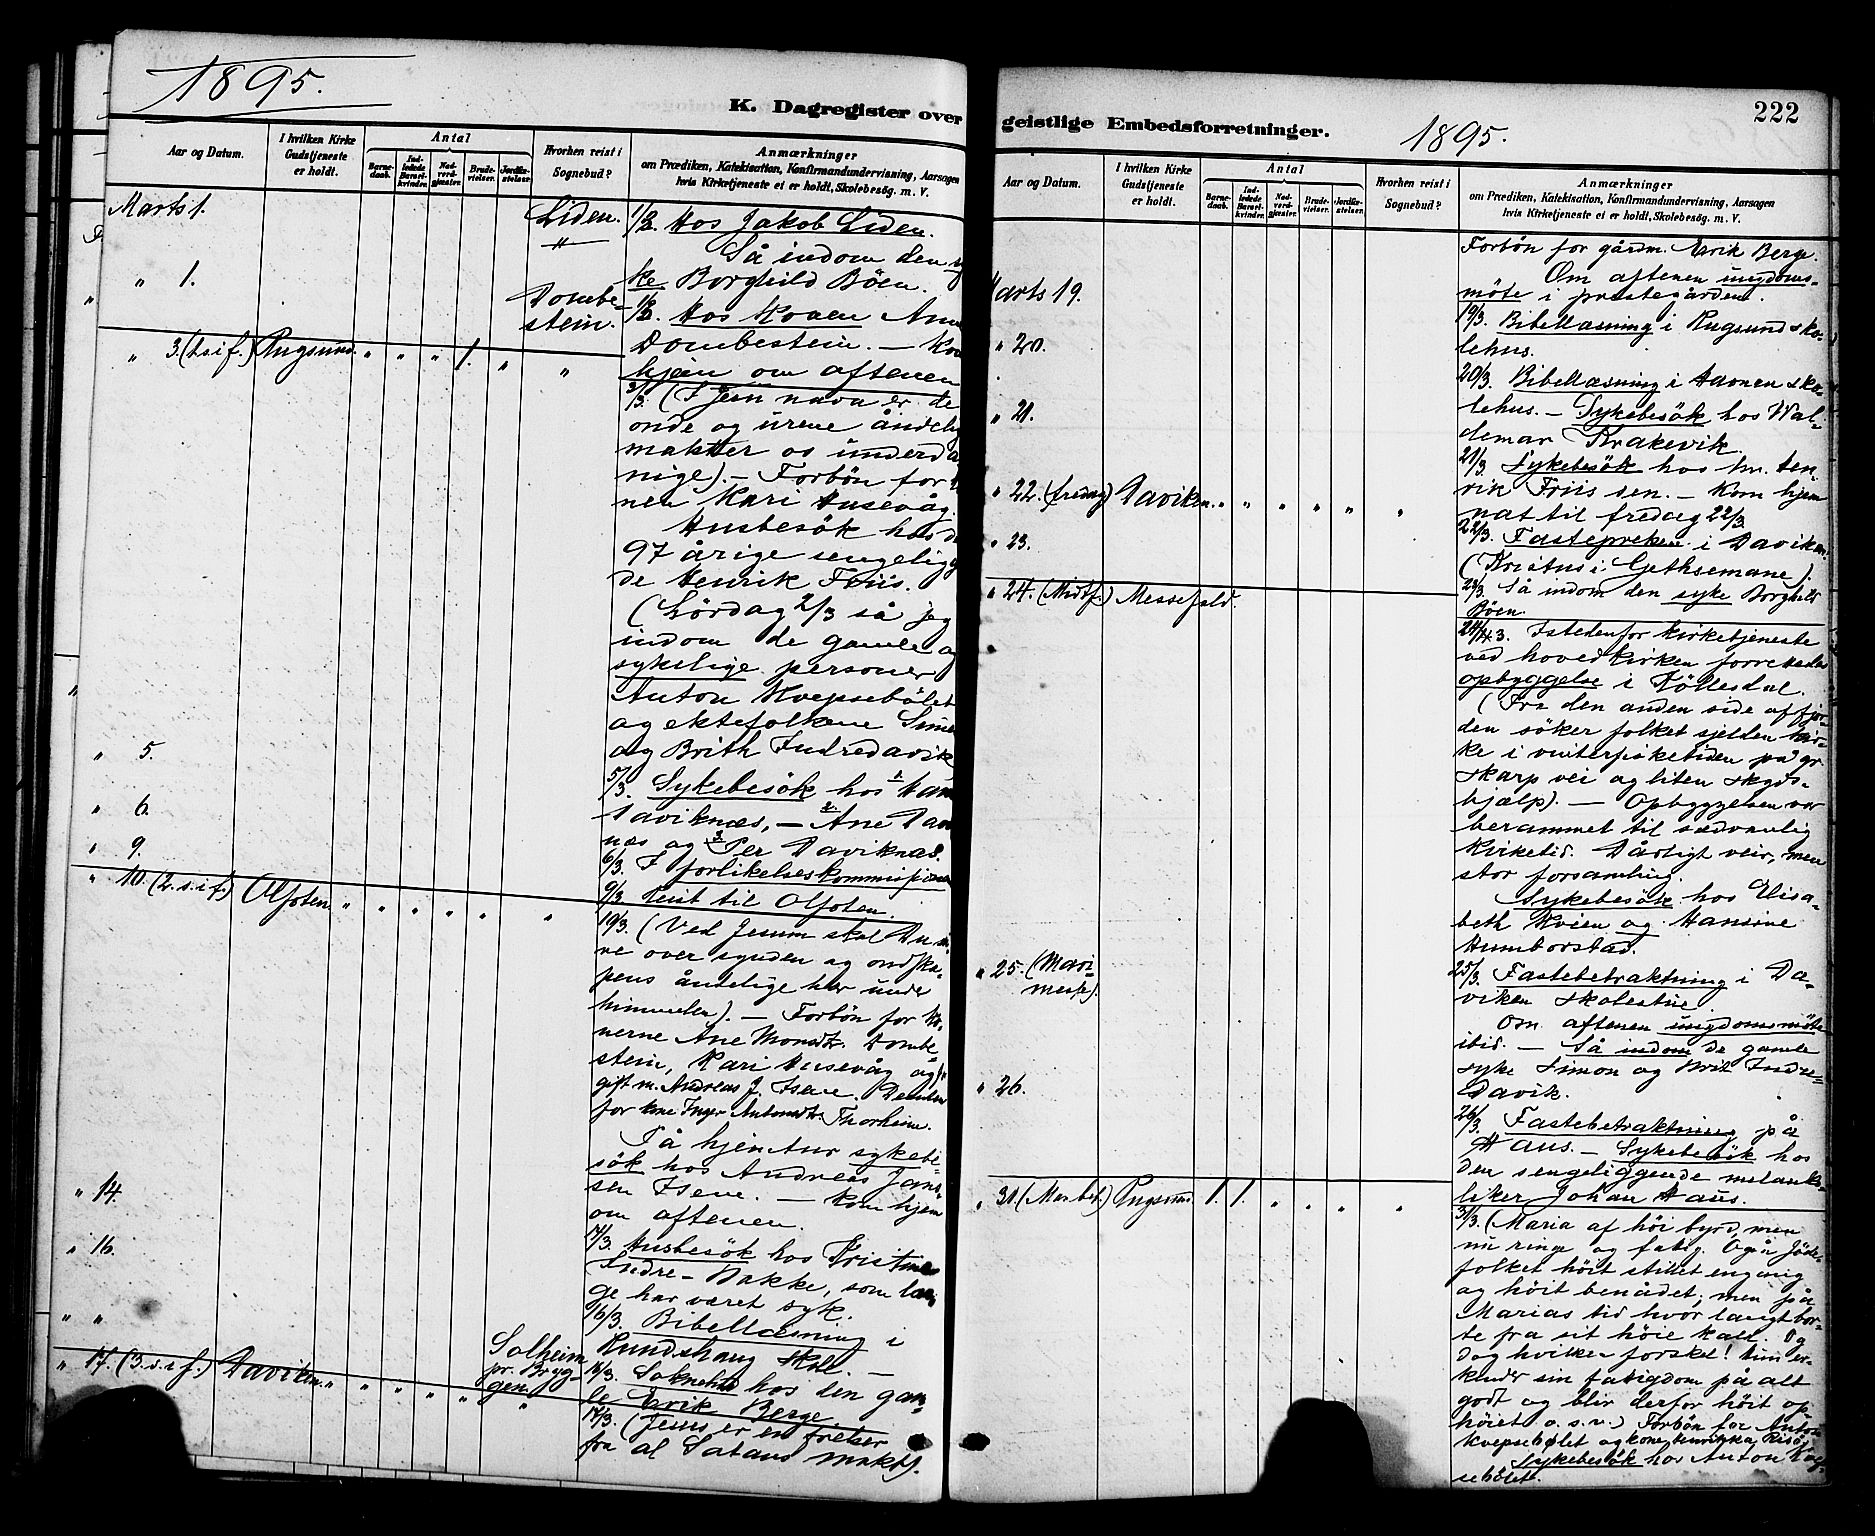 1895.
K. Dagregister over
Aar og Datum.
I hvilken Kirke Gudstjeneste er holdt.
Antal
Barnedaab.
Indledede Barselkvinder.
Nadverdgjæster.
Brudevielser.
Jordfæstelser.
Hvorhen reist i Sognebud?
Anmærkninger
om Prædiken, Katekisation, Konfirmandundervisning, Aarsagen
hvis Kirketjeneste ei er holdt, Skolebesøg m. V.
Marts 1.
Liden.
1/3. Hos Jakob Liden.
Så indom den sy
" 1.
ke Borghild Böen.
Dombe-
stein.
1/3. Hos Konen Ane
Dombestein. — Kom
" 3. (1.s.i f.) Rugsund. " " " 1. " "
hjem om aftenen
3/3. (I Jesu navn er de
onde og urene åndelig
makter os underda
nige). — Forbön for
nen Kari Husevåg.
Husbesök hos d
97 årige sengeligg
de Henrik Friis.
(Lördag 2/3 så jeg
indom de gamle og
sykelige personer
Anton Kvepsebölet
og ektefolkene Simo
og Brith Indredavik
" 5.
5/3. Sykebesök hos 1. Han
" 6.
Daviknæs, — 2. Ane Dav
" 9.
næs og 3. Per Daviknæs.
6/3. I forlikelseskommissionen
" 10. (2.s.i f.) Ålfoten. " " " " " "
9/3 Reist til Ålfoten.
10/3. (Ved Jesum skal Du
re over synden og ondska-
pens åndelige hær under
himmelen). — Forbön for ko-
nerne Ane Monsdtr. Dombe
stein, Kari Husevåg og
gift m. Andreas J. Isene.
for kone Inger Antonsdtr. Thorheim.
På hjemtur sykebe-
sök hos Andreas Jans
sen Isene. — Kom hjem
" 14.
om aftenen.
Husbesök hos Kristine
" 16.
Indre-Bakke, som læn-
ge har været syk.
16/3. Bibellæsning i
" "
Solheim
pr. Bryg-
gen.
Rundshaug skole. —
" 17. (3.s.i f.) Daviken. " " " " " "
16/3. Soknebud hos den gam-
le Eirik Berge
17/3. (Jesus er en frelser
fra al Satans makt).
222
geistlige Embedsforretninger.
1895.
Aar og Datum.
I hvilken Kirke Gudstjeneste er holdt.
Antal
Barnedaab.
Indledede Barselkvinder.
Nadverdgjæster.
Brudevielser.
Jordfæstelser.
Hvorhen reist i Sognebud?
Anmærkninger
om Prædiken, Katekisation, Konfirmandundervisning, Aarsagen
hvis Kirketjeneste ei er holdt, Skolebesøg m. V.
Forbön for gårdm. Eirik Berge.
Om aftenen ungdoms-
Marts 19.
möte i prestegården.
19/3. Bibellæsning i Rugsund sko-
" 20.
lehus.
20/3. Bibellæsning i Havnen sko-
" 21.
lehus. — Sykebesök hos Wal-
demar Krakevik.
21/3 Sykebesök hos hr. Hen-
" 22. (fredag) Daviken. " " " " " "
rik Friis sen. — Kom hjem
nat til fredag 22/3
" 23.
22/3. Fastepreken i Daviken.
(Kristus i Gethsemane).
" 24. (Midtf.) Messefald.
23/3. Så indom den syke Borghild
Böen.
24/3. Istedenfor kirketjeneste
ved hovedkirken forrettedes
opbyggelse i Töllesdal.
(Fra den anden side af fjor-
den söker folket sjelden kir-
ke i vinterfisketiden på gr.
skarp vei og liten skyds-
hjælp). — Opbyggelsen var
berammet til sædvanlig
kirketid. Dårligt veir, men
stor forsamling.
Sykebesök hos Elisa-
beth Kvien og Hansine
Humborstad.
" 25. (Mari-
messe).
25/3 Fastebetraktning i Da-
viken skolestue.
Om aftenen ungdomsmöte
ibid. — Så indom de gamle
syke Simon og Brit Indre-
" 26.
Davik.
26/3. Fastebetraktning på
Haus. — Sykebesök hos
den sengeliggende melanko-
" 31. (Mar. bet.) Rugsund. 1. 1. " " " "
liker Johan Haus.
31/3. (Maria af höi byrd, men
nu ringe og fattig. Også Jöde-
folket höit stillet engang
og höit benådet; men på
Marias tid hvor langt bor-
te fra sit höie kall. Og
dog hvilken forskel! Hun er-
kender sin fattigdom på alt
godt og blir derfor höit op-
höiet o. s. v.) Forbön for Anton
Kvepsebølet og kone
Sykebesök hos Anton Kvep-
sebölet.